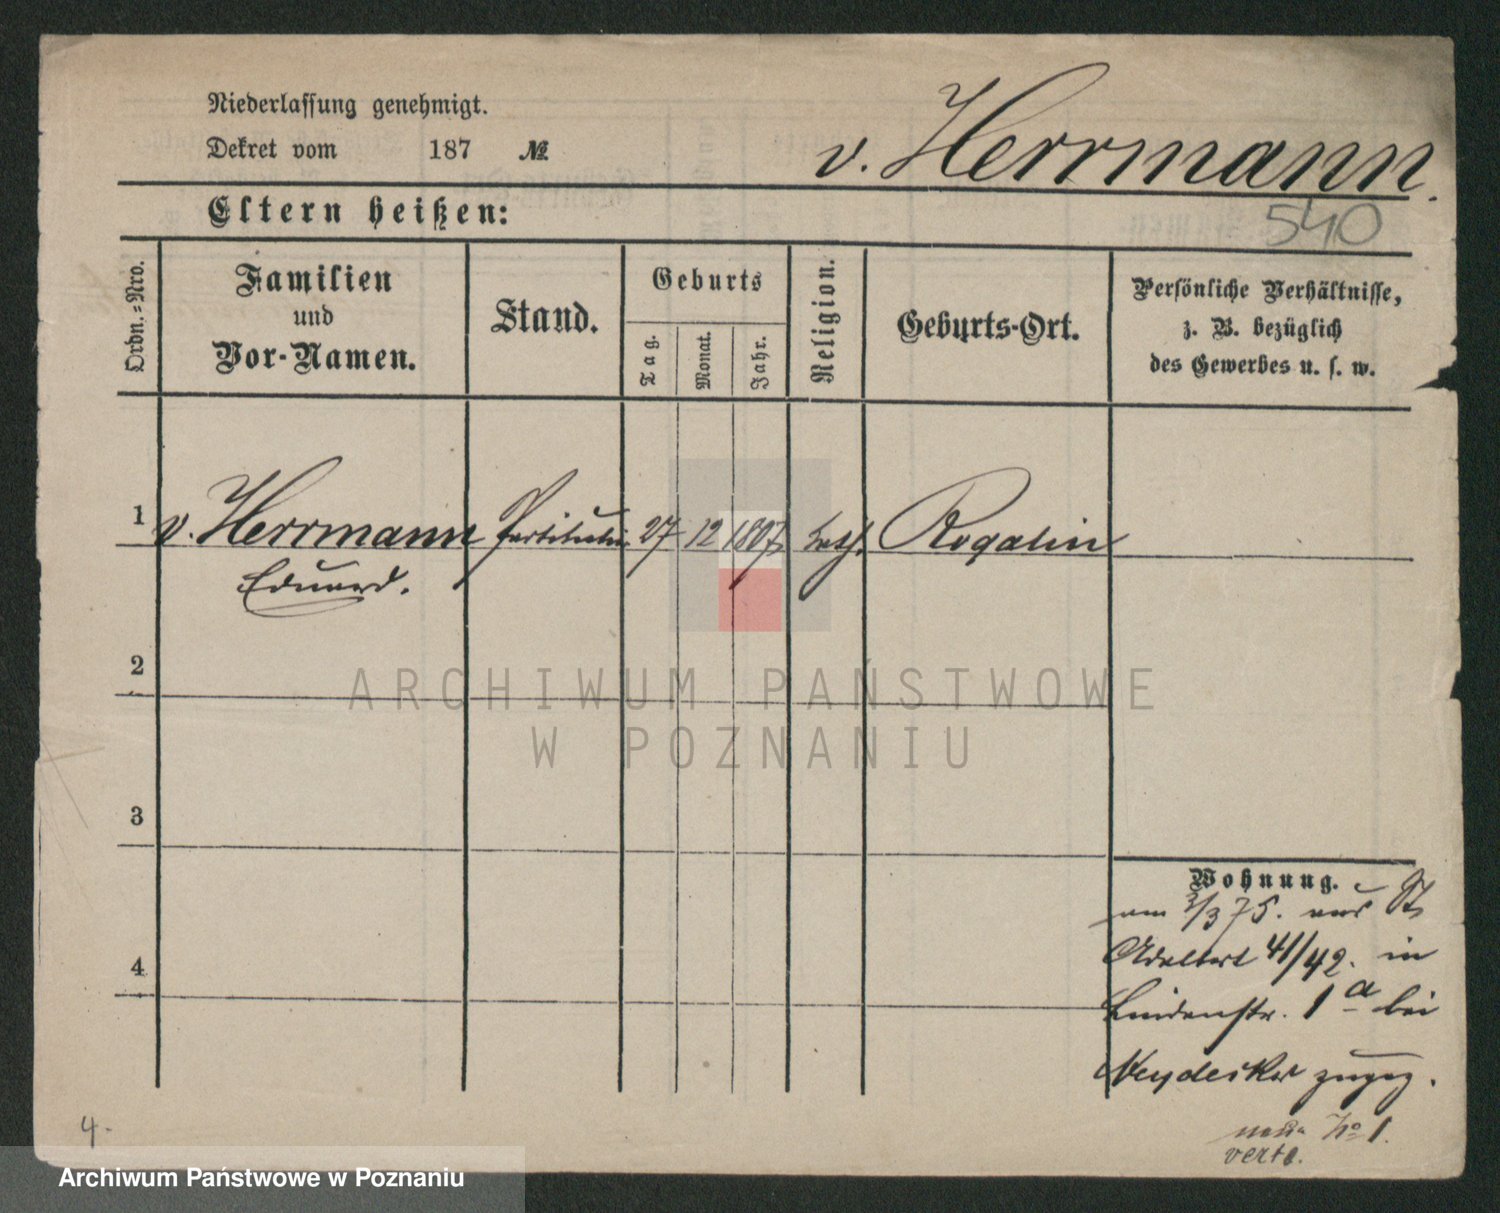 Niederlassung genehmigt.
Dekret vom 187 №
v. Herrmann.
540
Eltern heißen:
Ordn.-Nro.
Familien
und
Vor-Namen.
Stand.
Geburts
Tag.
Monat.
Jahr.
Religion.
Geburts-Ort.
Persönliche Verhältnisse,
z. B. bezüglich
des Gewerbes u. s. w.
1 v. Herrmann 27 12 1807 kath. Rogalin
Eduard.
2
ARCHIWUM PAŃSTWOWE
W POZNANIU
3
Wohnung.
am 3/3 75. aus St
Adalbert 41/42. in
4
Lindenstr. 1a bei
Neydecker zugez.
No 1.
4.
Archiwum Państwowe w Poznaniu